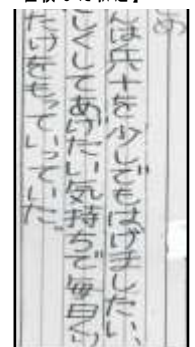 め
んは兵十を少しでもはげましたい、
しくしてあげたい気持ちで毎日くり
たけをもっていっていた。